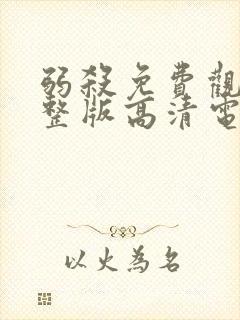 弱殺免費觀
整版高清電
以火為名